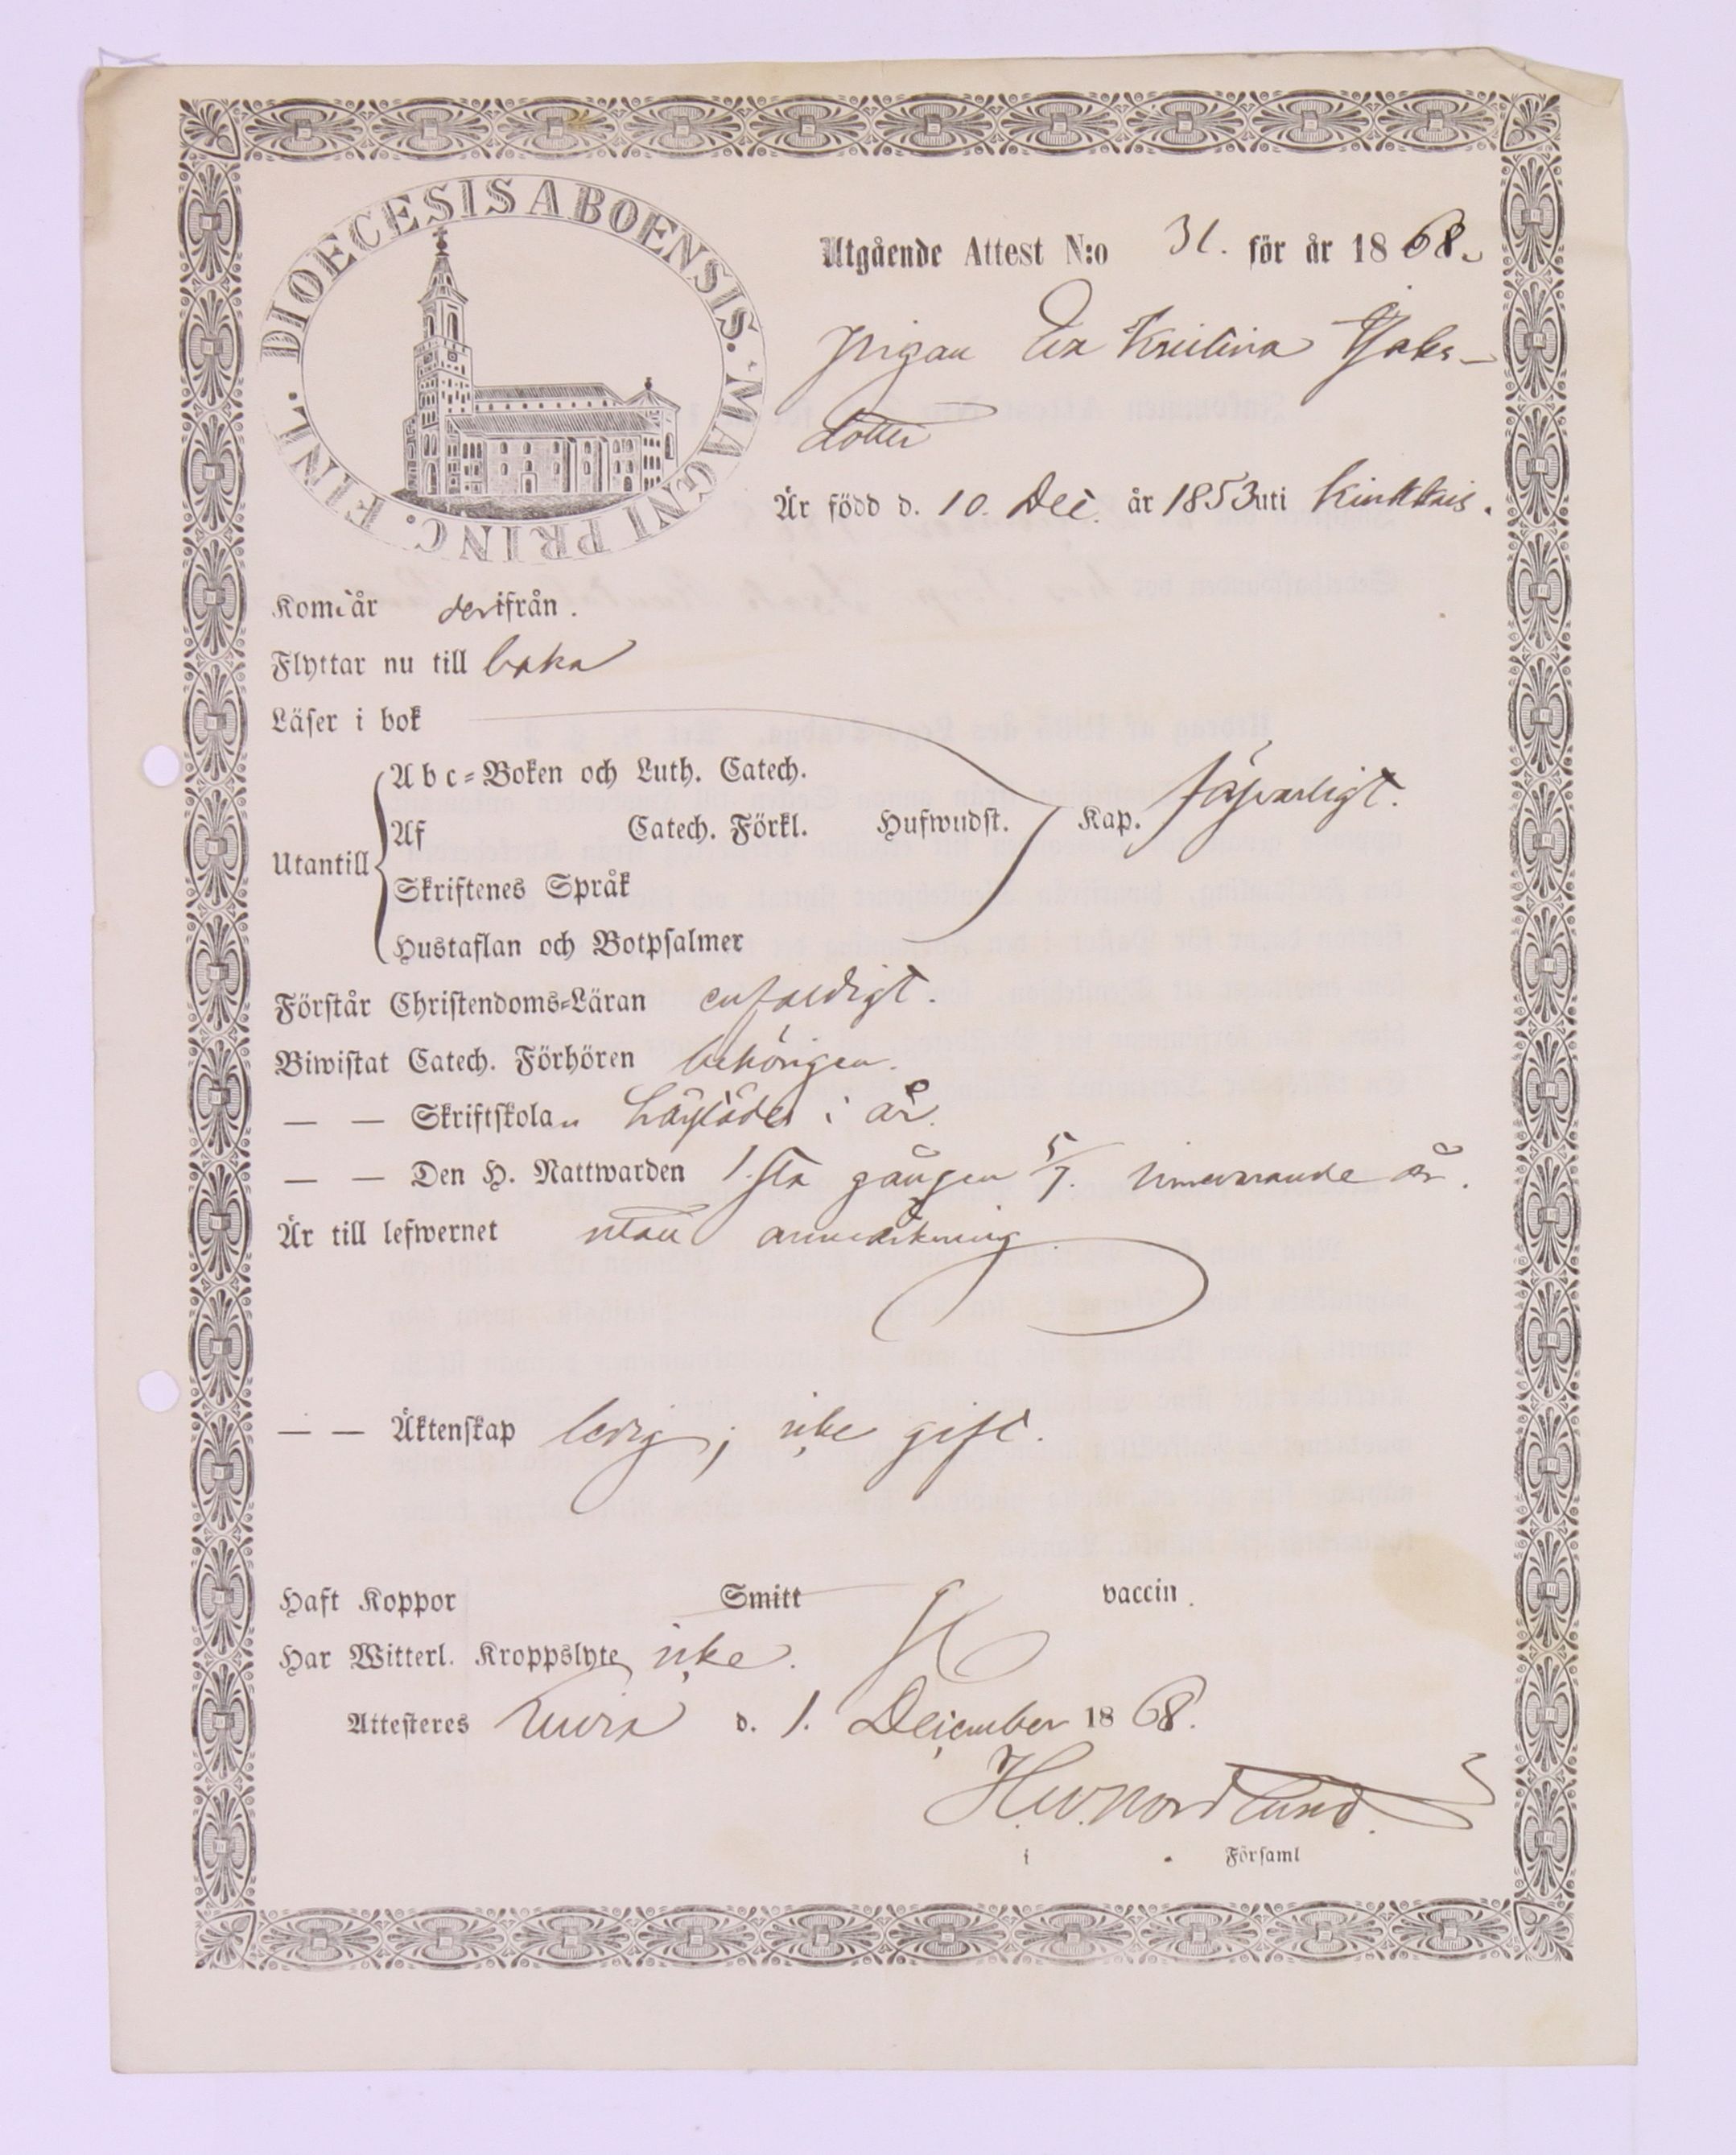 DIOECESIS ABOENSIS. MAGNI PRINC. FINL.
Utgående Attest N:o 31. för år 1868.
Pigan Eva Kristina Jaks-
dotter
Är född d. 10. Dec. år 1853 uti Kinkkais.
Kom i år derifrån.
Flyttar nu till baka
Läser i bok
Utantill
Abc-Boken och Luth. Catech.
Af Catech. Förkl. Hufwudst. Kap. försvarligt.
Skriftenes Språk
Hustaflan och Botpsalmer
Förstår Christendoms-Läran enfaldigt.
Biwistat Catech. Förhören behörigen.
— — Skriftskolan i år.
— — Den H. Nattwarden 1. sta gången 5/7. innevarande år.
Är till lefwernet utan anmärkning.
— — Äktenskap ledig; icke gift.
Haft Koppor Smitt vaccin.
Har Witterl. Kroppslyte icke.
Attesteres d. 1. December 1868.
H. W. Nordlund.
i Församl